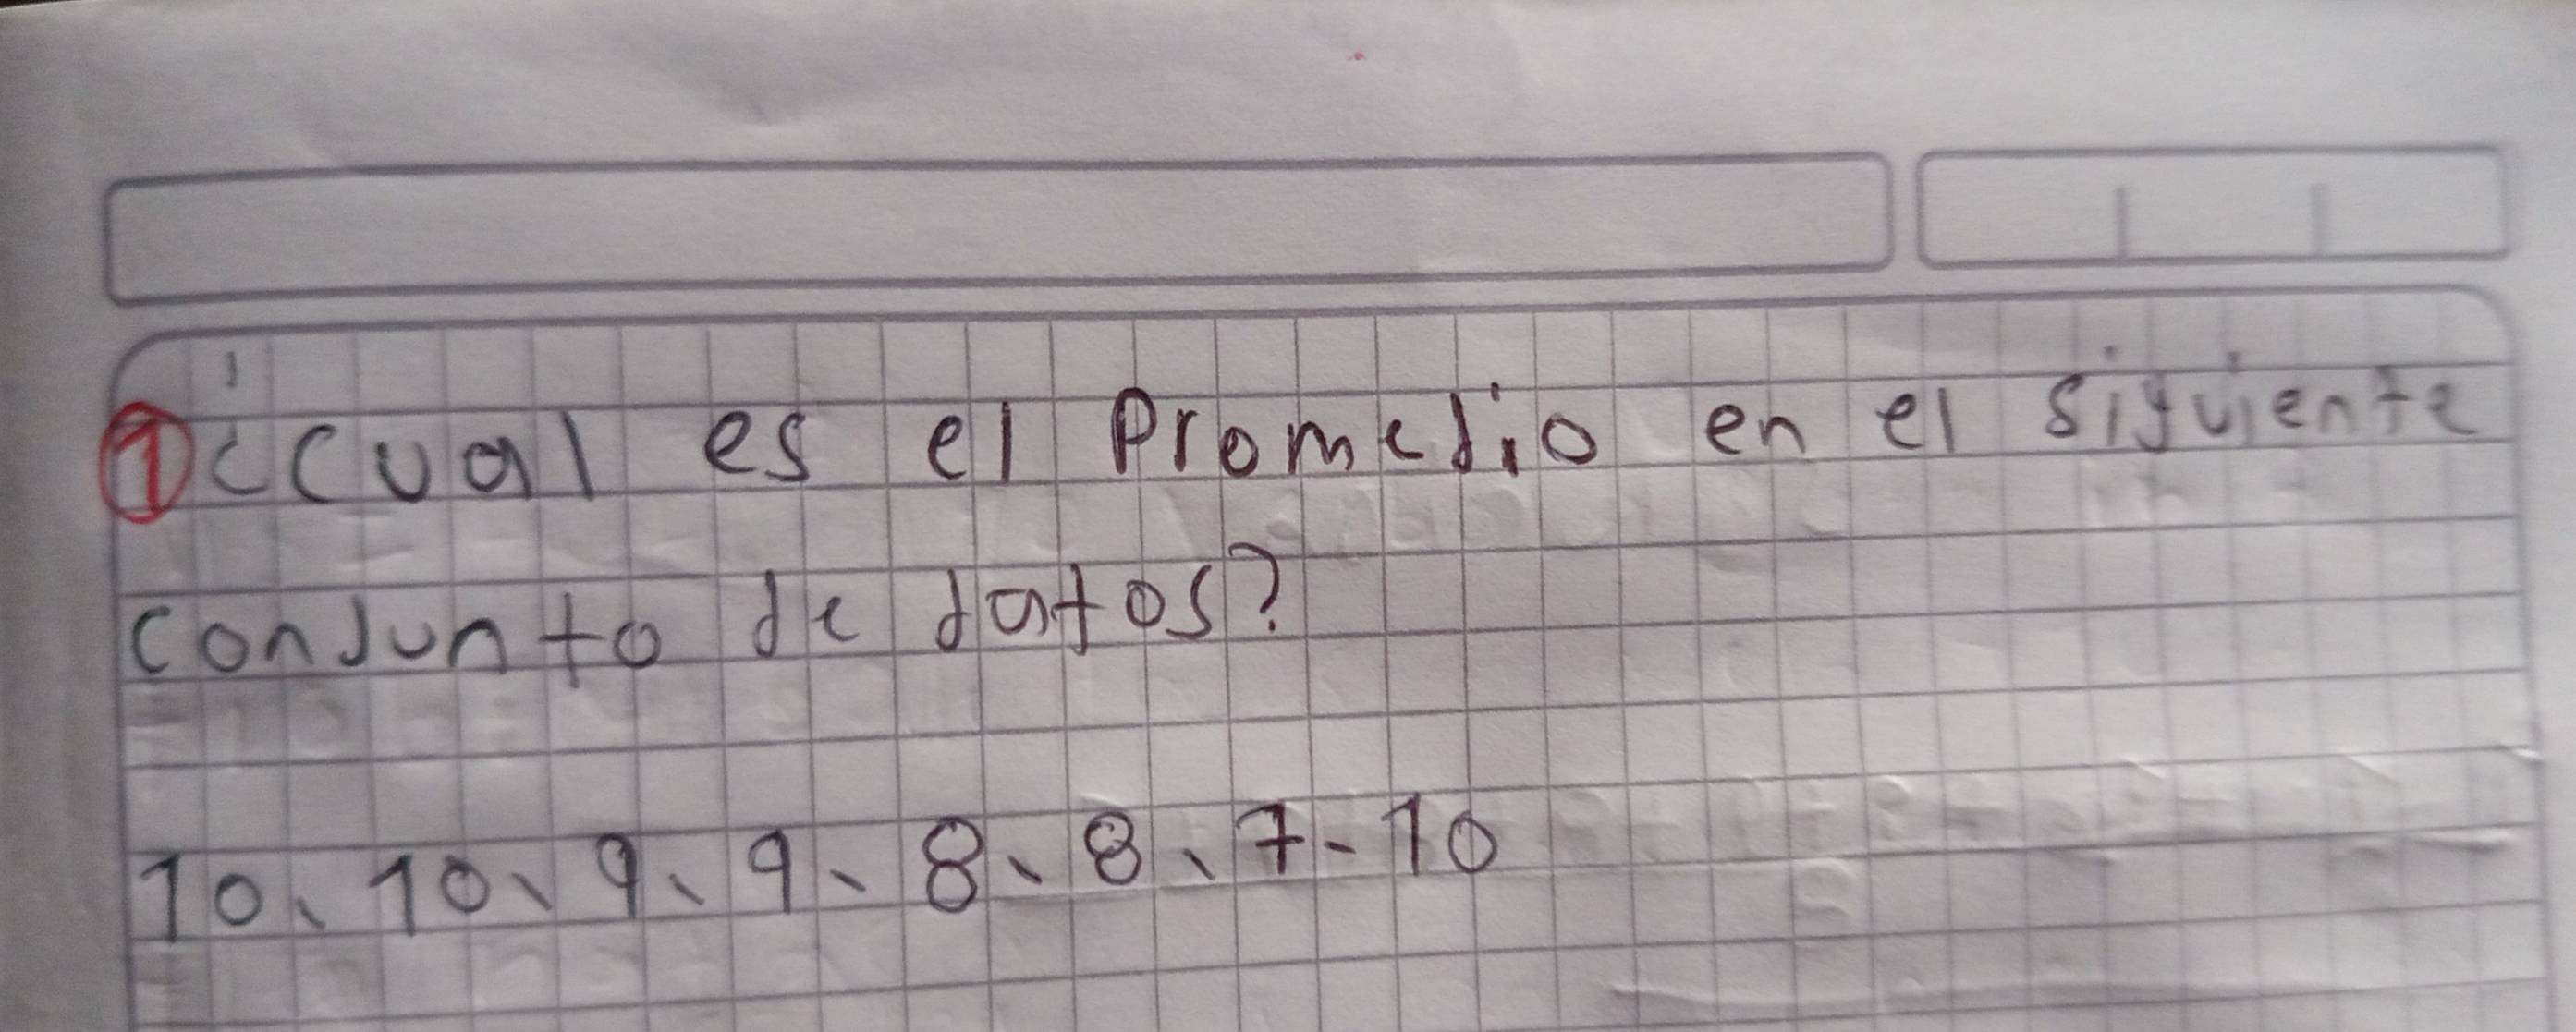 ① ¿Cual es el Promedio en el siguiente
conjunto de datos?
10, 10, 9, 9, 8, 8, 7-10